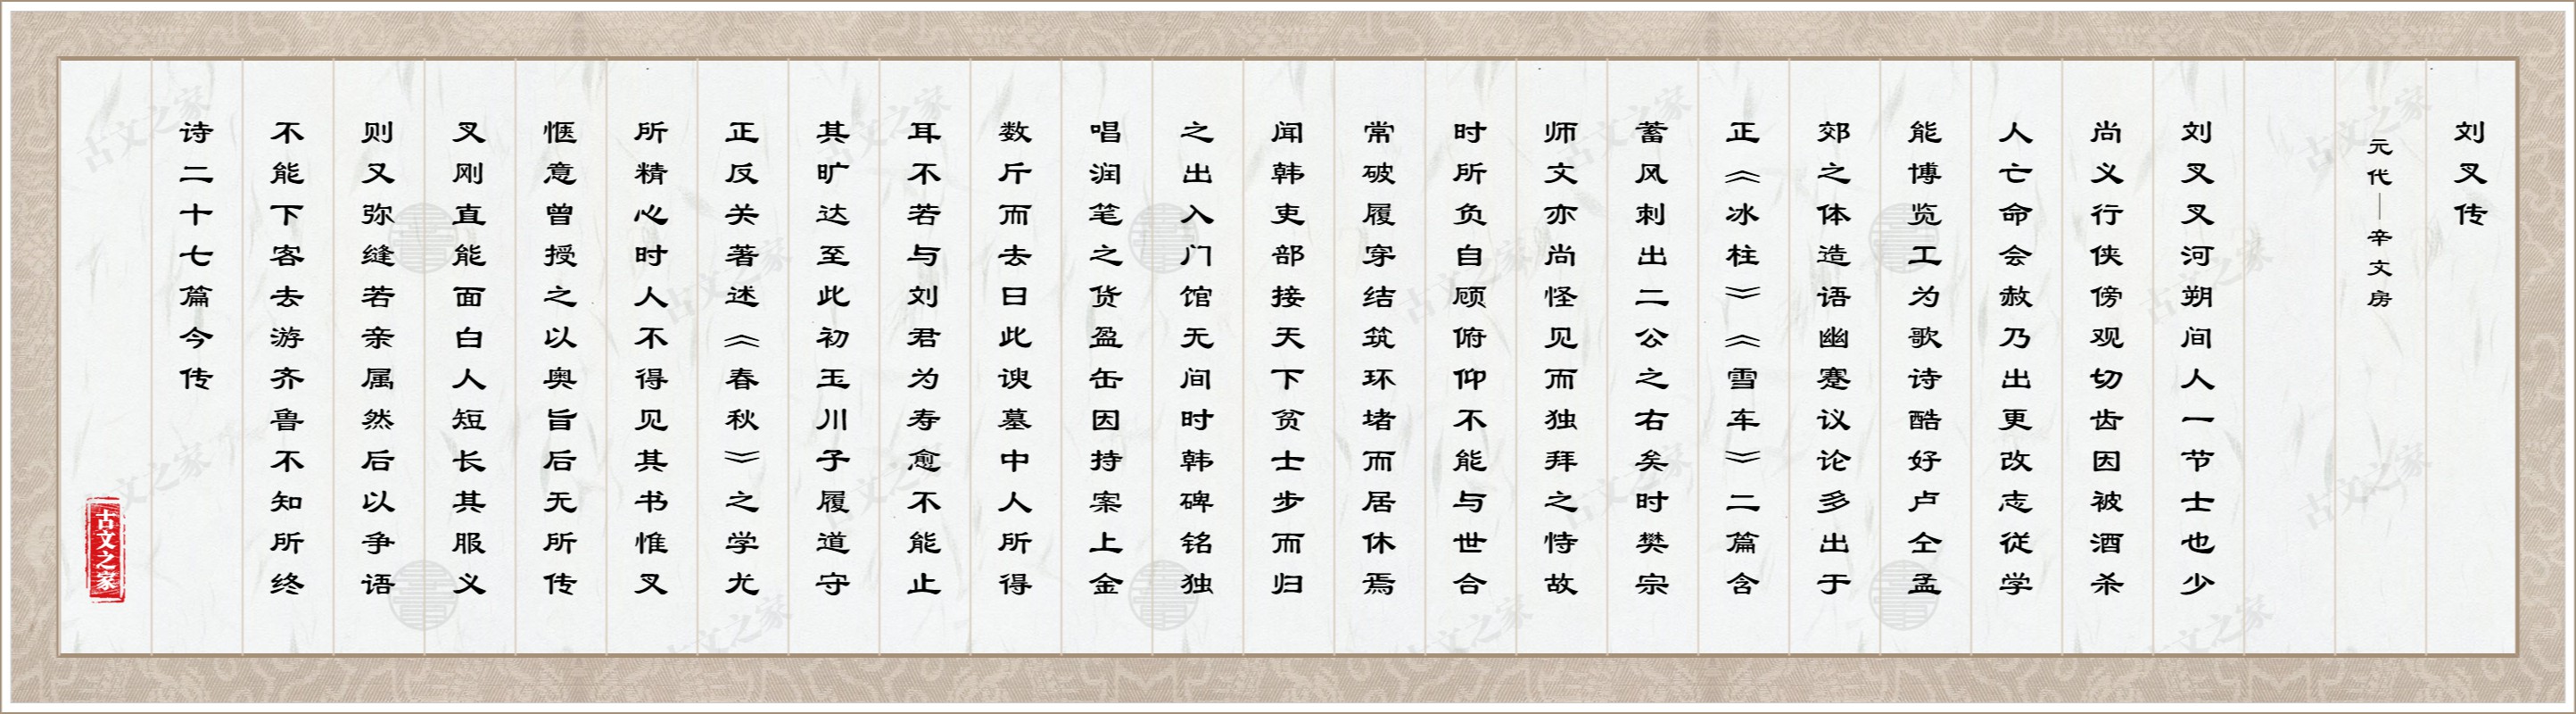 刘叉传
元代—辛文房
刘叉叉河朔间人一节士也少
尚义行侠傍观切齿因被酒杀
人亡命会赦乃出更改志从学
能博览工为歌诗酷好卢仝孟
郊之体造语幽蹇议论多出于
正《冰柱》《雪车》二篇含
蓄风刺出二公之右矣时樊宗
师文亦尚怪见而独拜之恃故
时所负自顾俯仰不能与世合
常破履穿结筑环堵而居休焉
闻韩吏部接天下贫士步而归
之出入门馆无间时韩碑铭独
唱润笔之货盈缶因持案上金
数斤而去曰此谀墓中人所得
耳不若与刘君为寿愈不能止
其旷达至此初玉川子履道守
正反关著述《春秋》之学尤
所精心时人不得见其书惟叉
惬意曾授之以奥旨后无所传
叉刚直能面白人短长其服义
则又弥缝若亲属然后以争语
不能下客去游齐鲁不知所终
诗二十七篇今传
古文之家